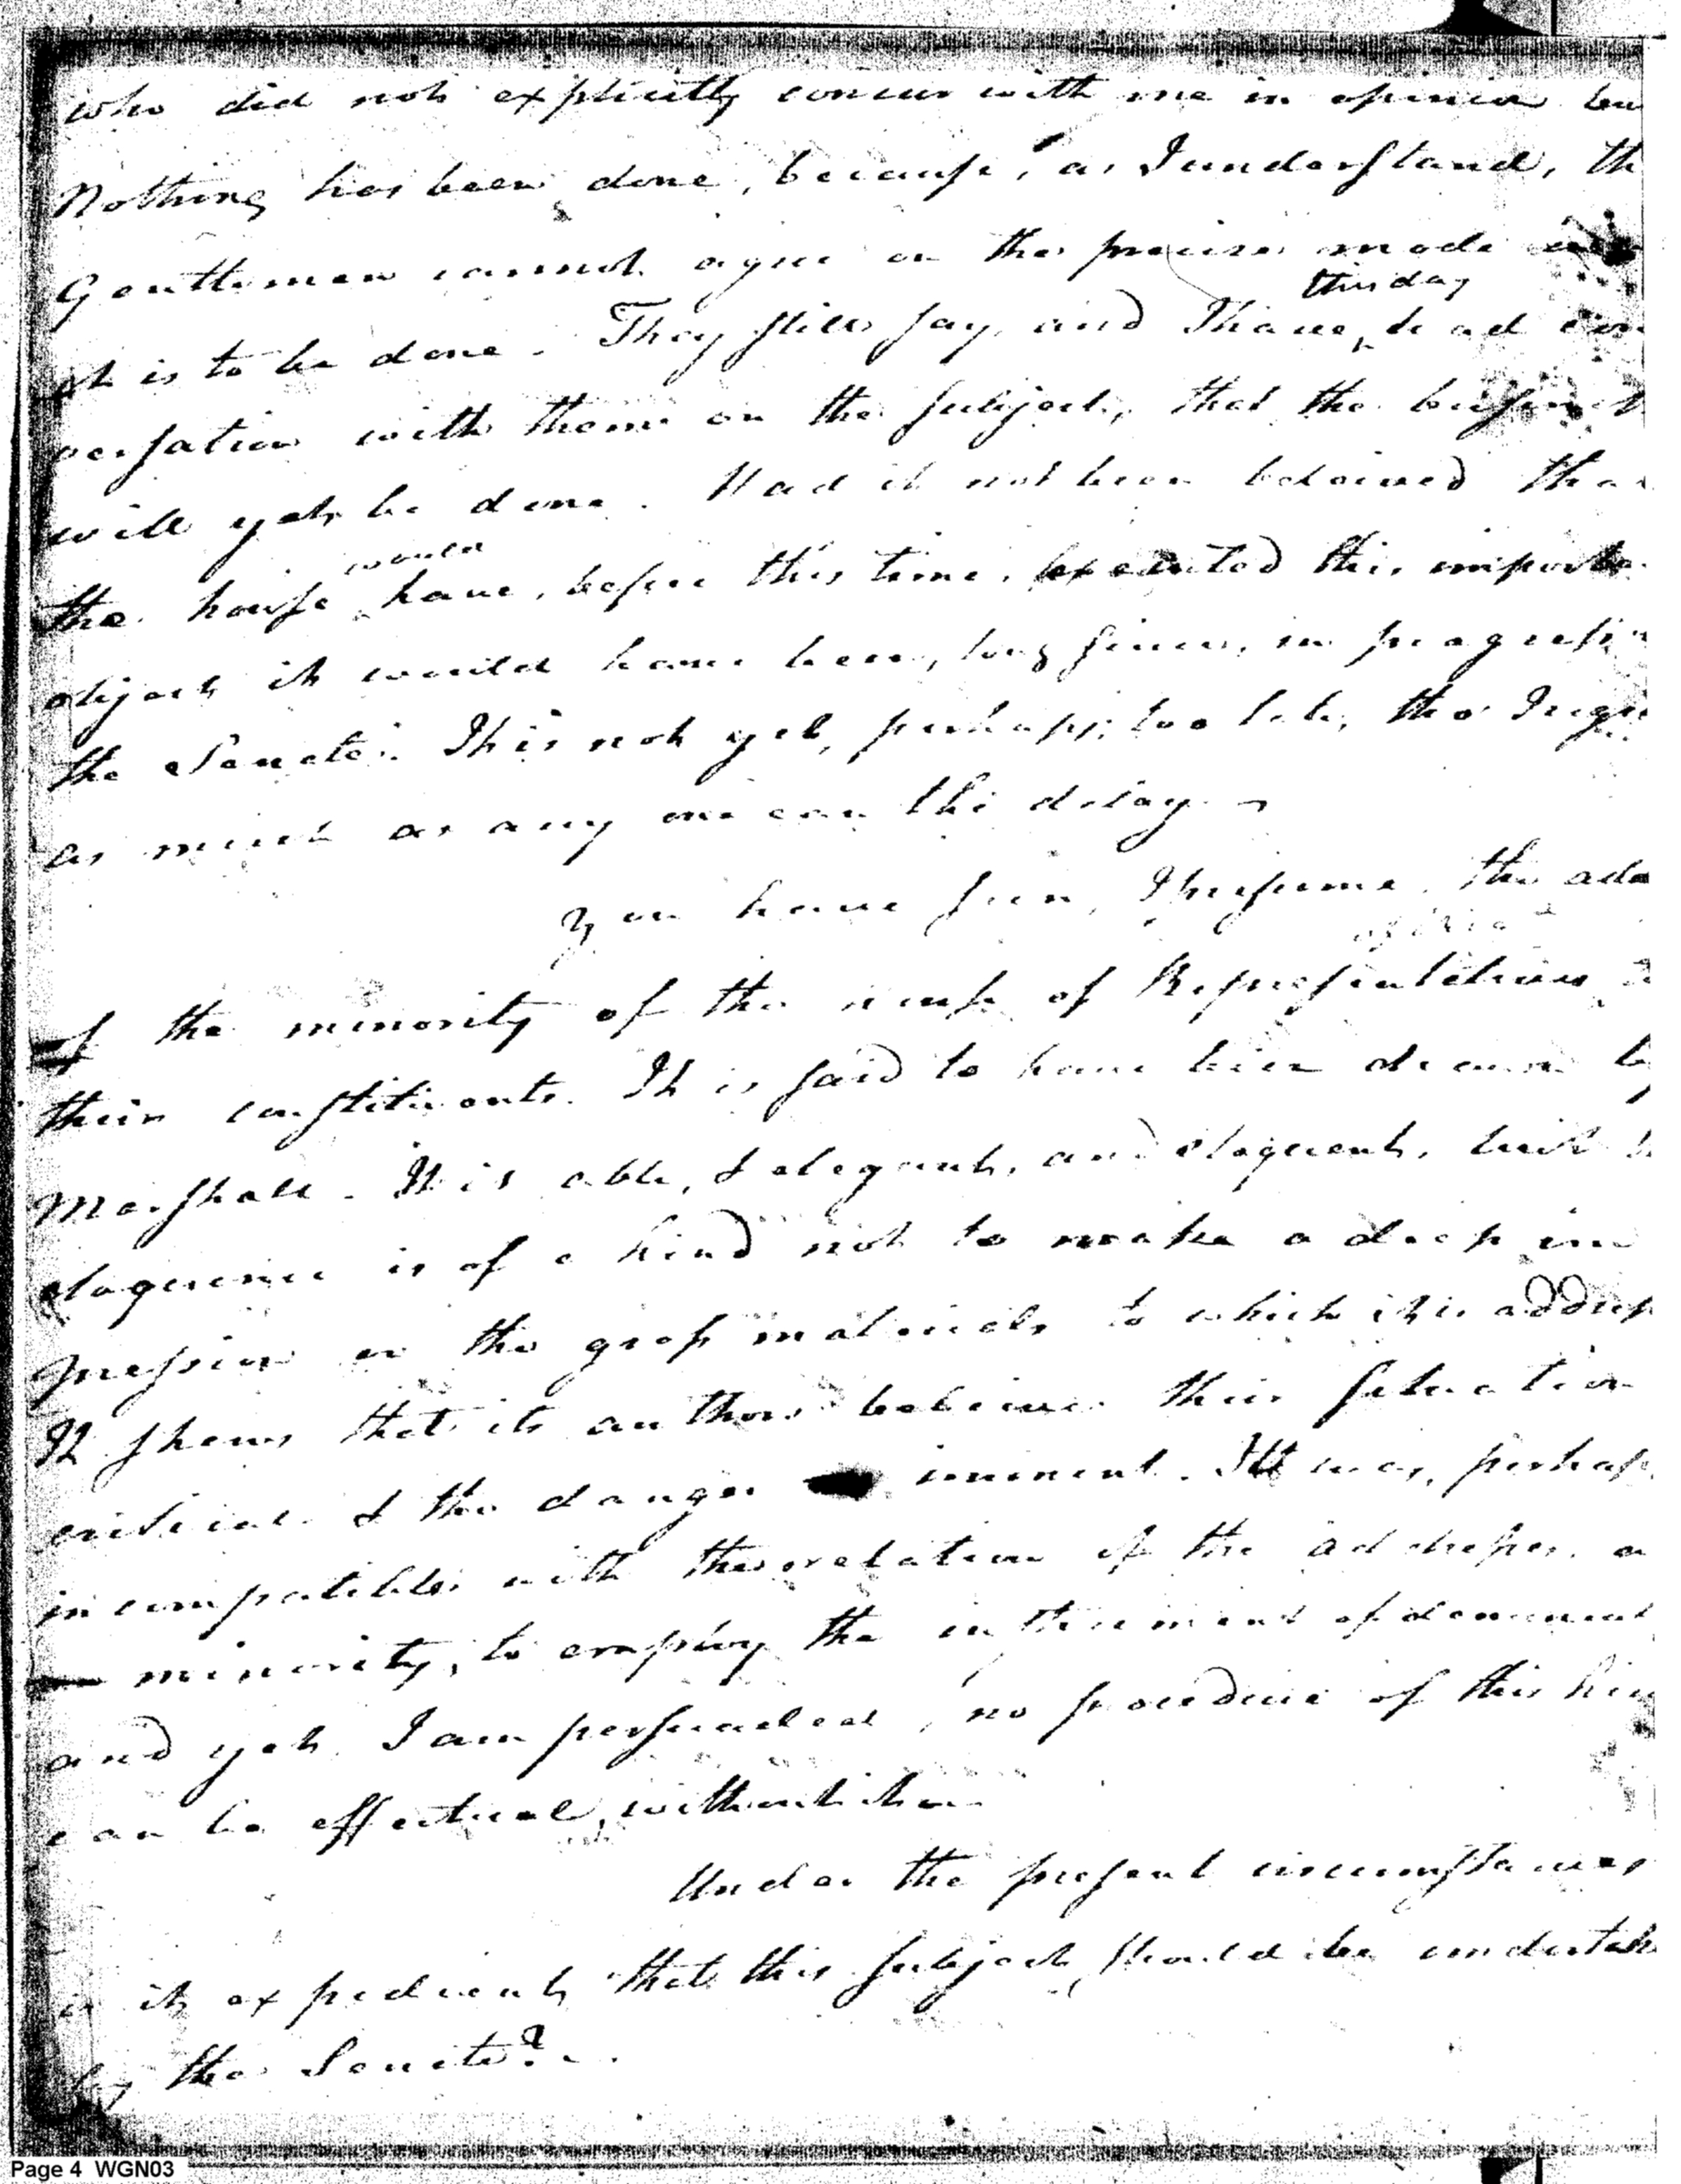 who did not explicitly concur with me in opinion bu
Nothing has been done, because, as I understand, th
Gentlemen cannot agree on the precise mode
this day
it is to be done. They still say, and I have had con
versation with them on the subject, that the business
will yet be done. Had it not been believed that
would
the house have, before this time, executed this importa
object it would have been, long since, in progress in
the Senate. It is not yet, perhaps, too late, tho' I regr
as much as any one can the delay.
You have seen, I presume, the add
of the minority of the house of Representatives
their constituents. It is said to have been drawn by
Marshall. It is able, & elegant, and eloquent, but
eloquence is of a kind not to make a deep im
pression on the gross materials to which it is address
It shews that its authors believe their situation
critical & the danger iminent. It was, perhaps
incompatible with the relation of the addressers, a
minority, to employ the instrument of
and yet I am persuaded, no procedure of this kin
can be effectual, without it.
Under the present circumstances
is it expedient that this subject should be undertak
by the Senate?
Page 4 WGN03